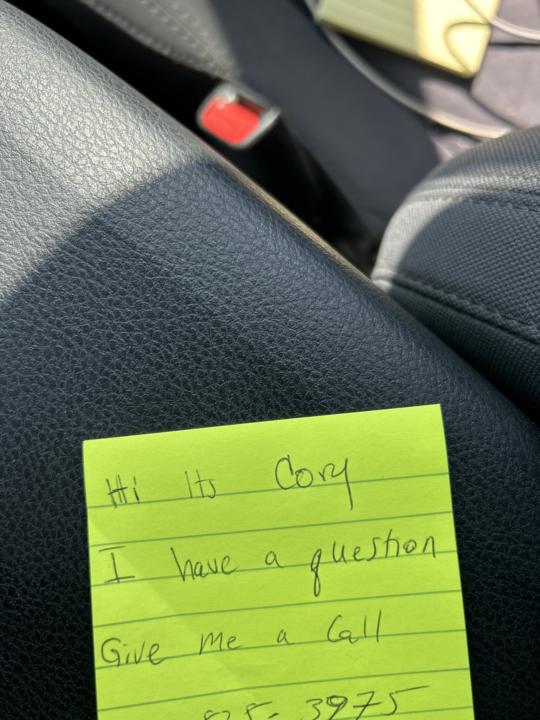 Hi Its Cory
I have a question
Give me a Call
3975